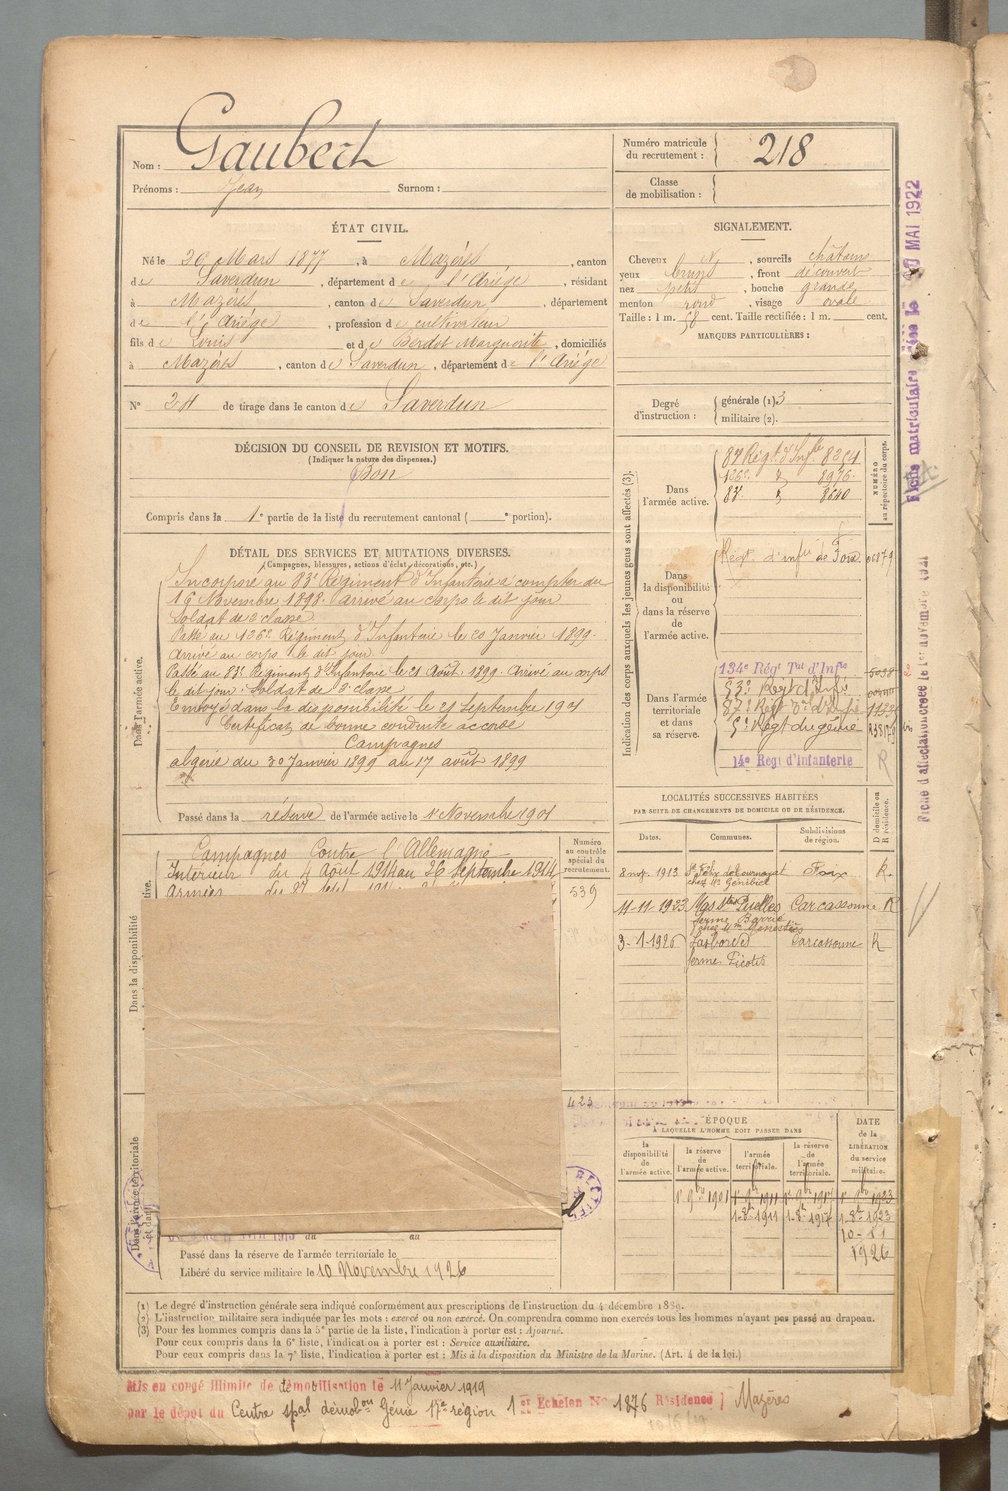 Nom : Gaubert
Prénoms : Jean Surnom :
Numéro matricule du recrutement : 218
Classe de mobilisation :
ÉTAT CIVIL.
Né le 20 Mars 1877, à Mazères, canton
de Saverdun, département de l'Ariège, résidant
à Mazères, canton de Saverdun, département
de l'Ariège, profession de cultivateur
fils de Louis et de Berdot Marguerite, domiciliés
à Mazères, canton de Saverdun, département de l'Ariège
N° de tirage dans le canton de Saverdun
SIGNALEMENT.
Cheveux N, sourcils châtains
yeux bruns, front découvert
nez petit, bouche grande
menton rond, visage ovale
Taille : 1 m. 58 cent. Taille rectifiée : 1 m. cent.
MARQUES PARTICULIÈRES :
Degré d'instruction : générale (1) 3
militaire (2).
DÉCISION DU CONSEIL DE REVISION ET MOTIFS.
(Indiquer la nature des dispenses.)
Bon
Compris dans la 1e partie de la liste du recrutement cantonal ( e portion).
DÉTAIL DES SERVICES ET MUTATIONS DIVERSES.
(Campagnes, blessures, actions d'éclat, décorations, etc.)
Dans l'armée active.
Incorporé au 83e Régiment d'Infanterie à compter du
16 Novembre 1898. Arrivé au corps le dit jour
Soldat de 2e classe
Passé au 136e Régiment d'Infanterie le 20 Janvier 1899.
Arrivé au corps le dit jour.
Passé au 83e Régiment d'Infanterie le 21 Août 1899. Arrivé au corps
le dit jour. Soldat de 2e classe
Envoyé dans la disponibilité le 21 Septembre 1901
Certificat de bonne conduite accordé
Campagnes
Algérie du 30 Janvier 1899 au 17 août 1899
Passé dans la réserve de l'armée active le 1er Novembre 1901
Campagnes Contre l'Allemagne
Intérieur du 4 Août 1914 au 26 Septembre 1914
Armées du 27 Sept
Dans la disponibilité
Numéro au contrôle spécial du recrutement
539
Dans l'armée territoriale
Passé dans la réserve de l'armée territoriale le
Libéré du service militaire le 10 Novembre 1926
Indication des corps auxquels les jeunes gens sont affectés (3).
NUMÉRO au répertoire du corps.
Dans l'armée active.
136e
83e 8640
Dans la disponibilité ou dans la réserve de l'armée active.
Régt d'infie de Foix
Dans l'armée territoriale et dans sa réserve.
134e Régt Tal d'Infie
53e Régt d'Infie
5e Régt du génie
14e Régt d'Infanterie
R
LOCALITÉS SUCCESSIVES HABITÉES
PAR SUITE DE CHANGEMENTS DE DOMICILE OU DE RÉSIDENCE.
Dates. Communes. Subdivisions de région. D domicile ou R résidence.
1913 Foix R.
11-11-1923 Mas Stes Puelles ferme Barrié Carcassonne R
3-1-1926 Laborde ferme Picotis Carcassonne R
ÉPOQUE
A LAQUELLE L'HOMME DOIT PASSER DANS
la disponibilité de l'armée active.
la réserve de l'armée active.
l'armée territoriale.
la réserve de l'armée territoriale.
DATE de la LIBÉRATION du service militaire.
1er 9bre 1901
1-8bre 1911 1-8bre 1917 1-8bre 1923
10-11
1926
(1) Le degré d'instruction générale sera indiqué conformément aux prescriptions de l'instruction du 4 décembre 1889.
(2) L'instruction militaire sera indiquée par les mots : exercé ou non exercé. On comprendra comme non exercés tous les hommes n'ayant pas passé au drapeau.
(3) Pour les hommes compris dans la 5e partie de la liste, l'indication à porter est : Ajourné.
Pour ceux compris dans la 6e liste, l'indication à porter est : Service auxiliaire.
Pour ceux compris dans la 7e liste, l'indication à porter est : Mis à la disposition du Ministre de la Marine. (Art. 4 de la loi.)
Mis en congé illimité de démobilisation le 11 Janvier 1919
par le dépôt du Centre spal démobon Génie 17e région 1er Echelon No 1876 Résidence : Mazères
Fiche matriculaire MAI 1922
Fiche d'affectation créée le 1er novembre